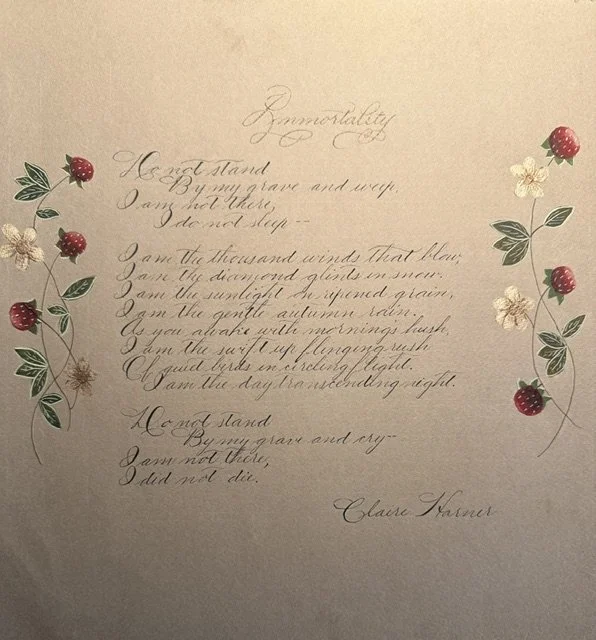 Immortality
Do not stand
By my grave and weep.
I am not there,
I do not sleep--
I am the thousand winds that blow;
I am the diamond glints in snow.
I am the sunlight on ripened grain,
I am the gentle autumn rain.
As you awake with morning's hush,
I am the swift up flinging rush
Of quid birds in circling flight.
I am the day transcending night.
Do not stand
By my grave and cry--
I am not there,
I did not die.
Claire Harner